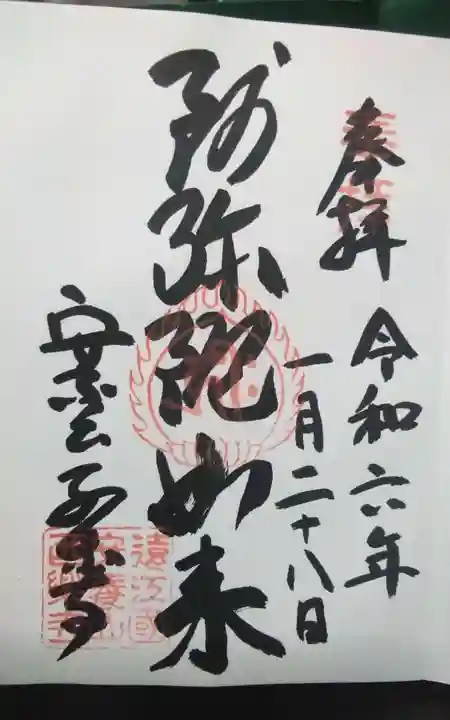 奉拝
令和六年
一月二十八日
阿弥陀如来
遠江國
安養山
西樂寺